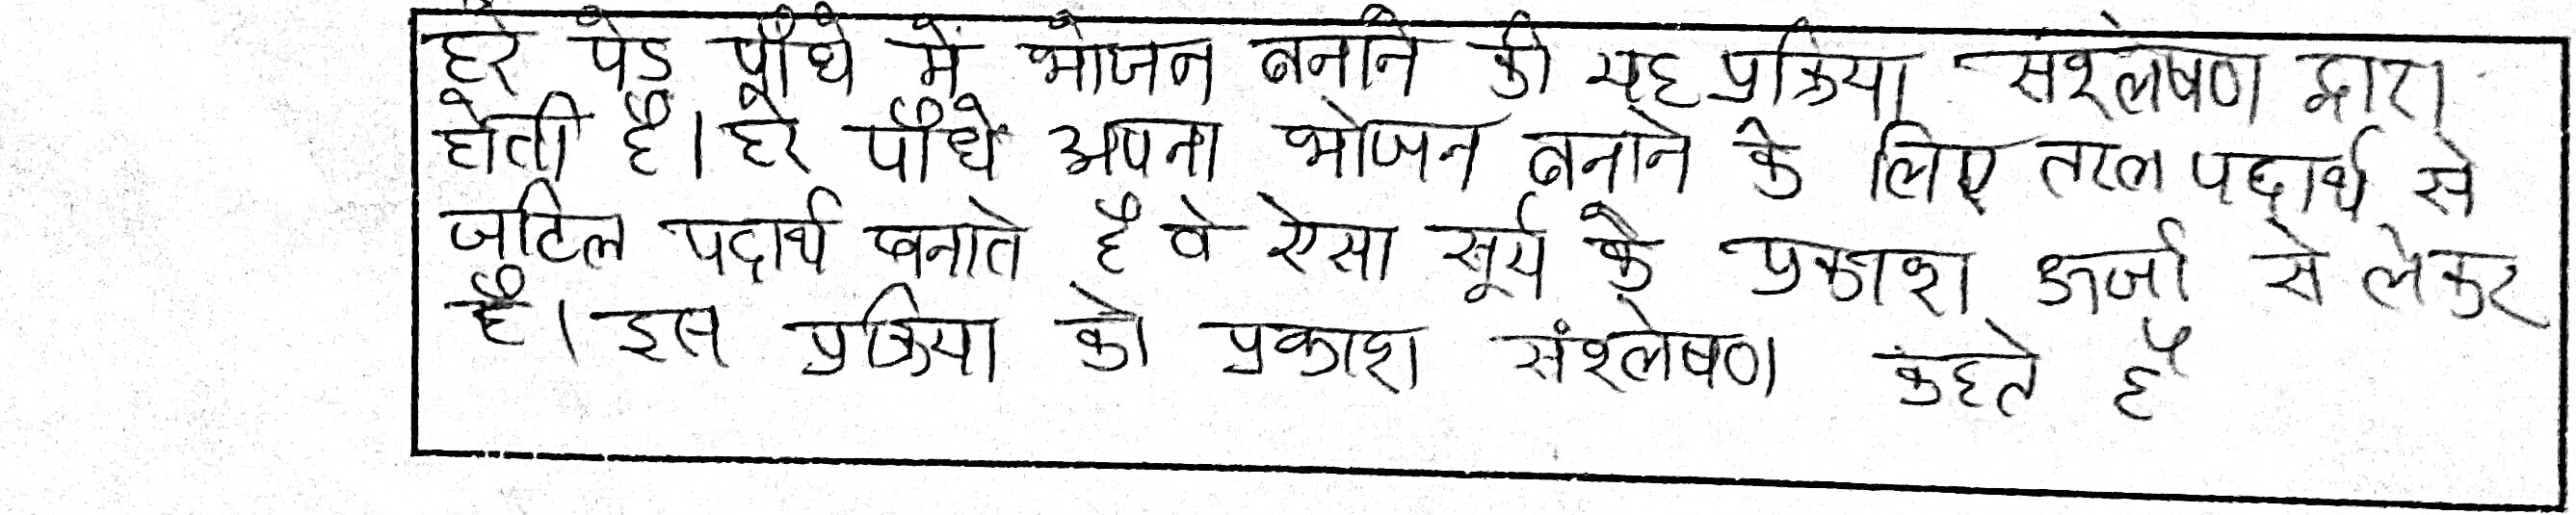 हरे पेड पौधे में भोजन बनाने की यह प्रक्रिया संश्लेषण द्वारा
होती है। हरे पौधे अपना भोजन बनाने के लिए तरल पदार्थ से
जटिल पदार्थ बनाते है वे ऐसा सूर्य के प्रकाश ऊर्जा से लेकर
है। इस प्रक्रिया को प्रकाश संश्लेषण कहते है